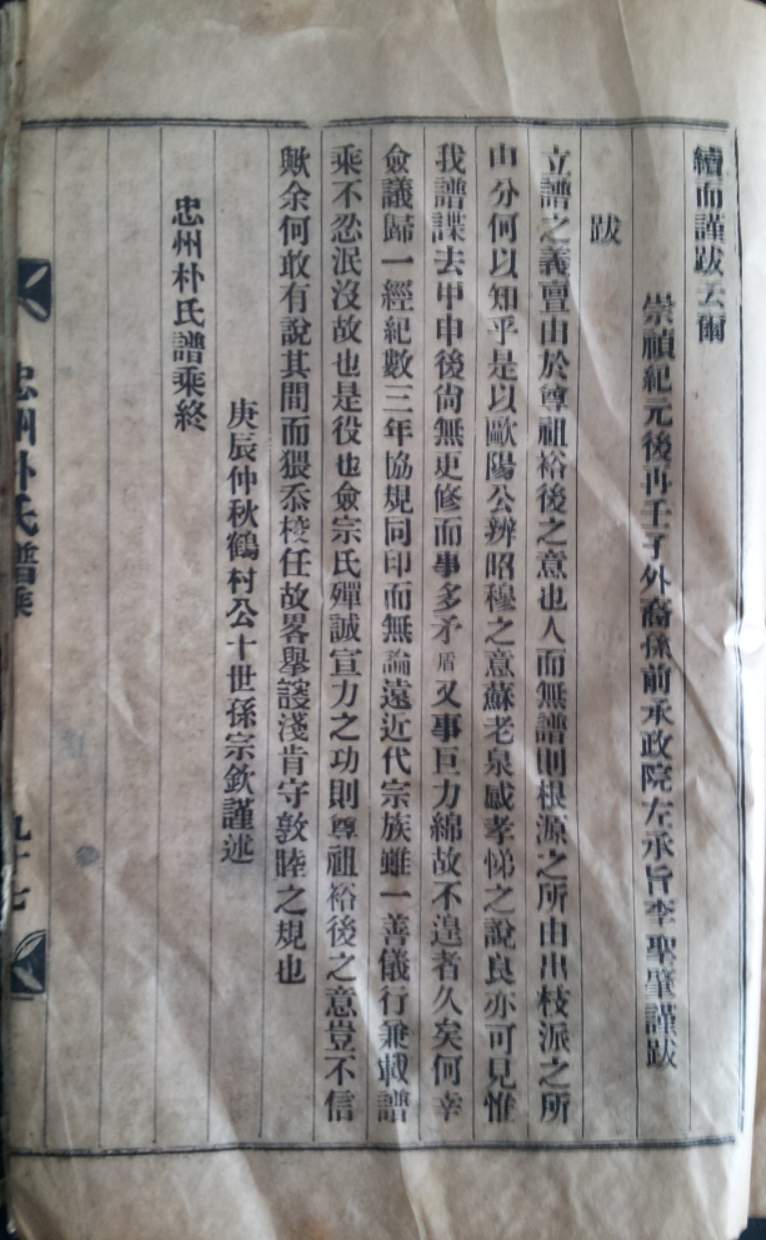 續而謹跋云爾
崇禎紀元後再壬子外裔孫前承政院左承旨李聖肇謹跋
跋
立譜之義亶由於尊祖裕後之意也人而無譜則根源之所由出枝派之所
由分何以知乎是以歐陽公辨昭穆之意蘇老泉感孝悌之說良亦可見惟
我譜諜去甲申後尙無更修而事多矛盾又事巨力綿故不遑者久矣何幸
僉議歸一經紀數三年協規同印而無論遠近代宗族雖一善儀行兼載譜
乘不忍泯沒故也是役也僉宗氏殫誠宣力之功則尊祖裕後之意豈不信
歟余何敢有說其間而猥忝校任故畧舉謏淺肯守敦睦之規也
庚辰仲秋鶴村公十世孫宗欽謹述
忠州朴氏譜乘終
忠州朴氏譜乘
九十七